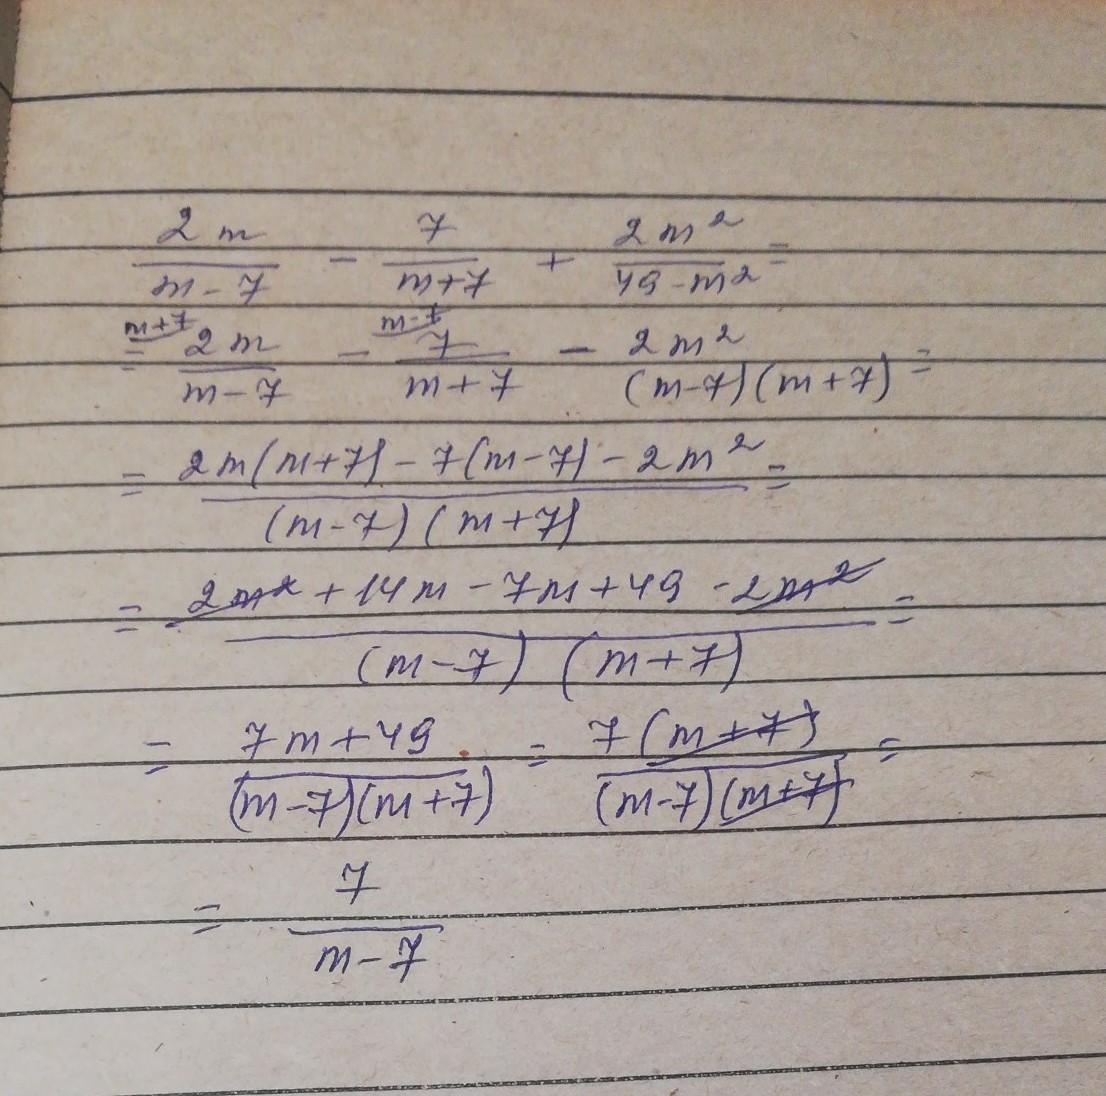 2m/(m-7) - 7/(m+7) + 2m²/(49-m²) =
= (m+7) 2m/(m-7) - (m-7) 7/(m+7) - 2m²/(m-7)(m+7) =
= (2m(m+7) - 7(m-7) - 2m²)/((m-7)(m+7)) =
= (2m² + 14m - 7m + 49 - 2m²)/((m-7)(m+7)) =
= (7m+49)/((m-7)(m+7)) = 7(m+7)/((m-7)(m+7)) =
= 7/(m-7)